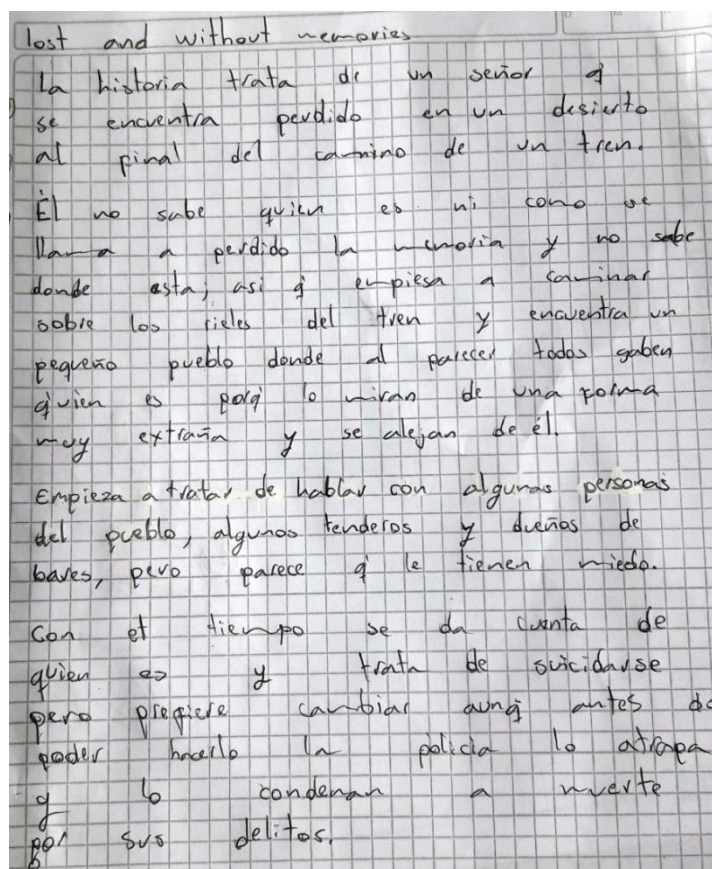 lost and without memories
La historia trata de un señor q
se encuentra perdido en un desierto
al final del camino de un tren.
Él no sabe quien es ni como se
llama a perdido la memoria y no sabe
donde esta, asi q empiesa a caminar
sobre los rieles del tren y encuentra un
pequeño pueblo donde al parecer todos saben
quien es porq lo miran de una forma
muy extraña y se alejan de él.
Empieza a tratar de hablar con algunas personas
del pueblo, algunos tenderos y dueños de
bares, pero parece q le tienen miedo.
Con el tiempo se da cuenta de
quien es y trata de suicidarse
pero prefiere cambiar aunq antes de
poder hacerlo la policia lo atrapa
y lo condenan a muerte
por sus delitos.